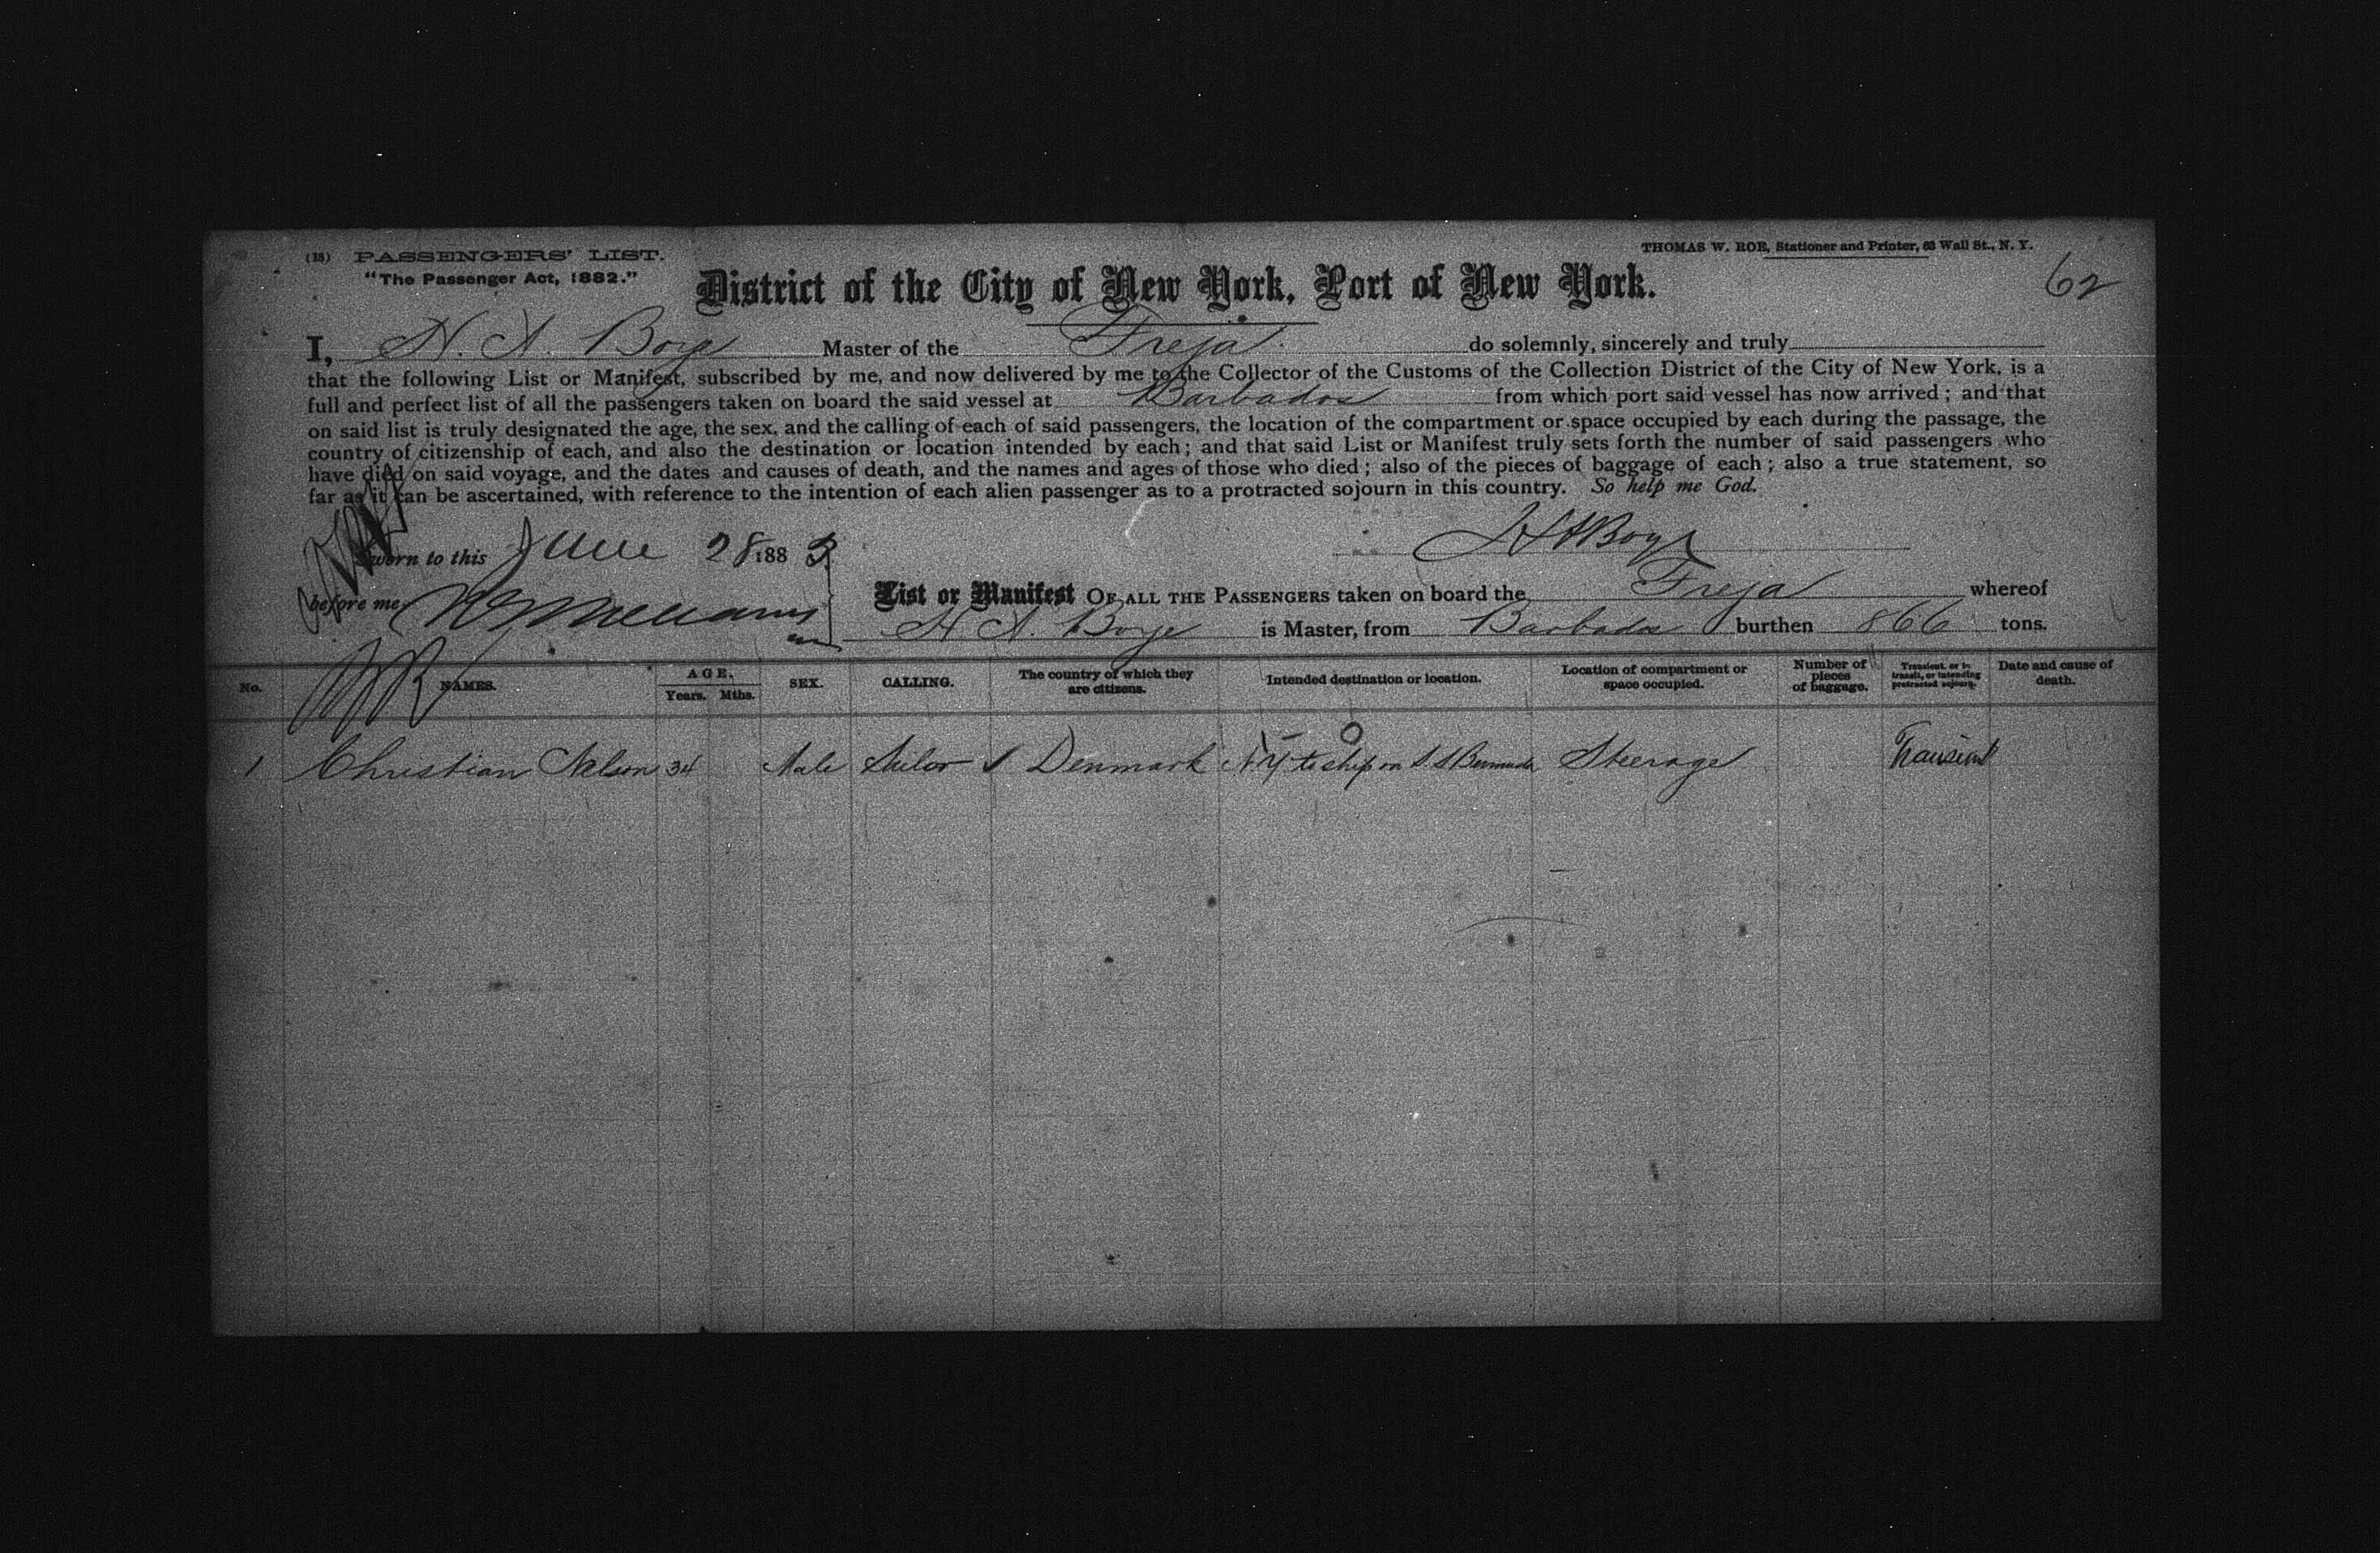 (18) PASSENGERS' LIST.
"The Passenger Act, 1882."
THOMAS W. ROE, Stationer and Printer, 63 Wall St., N. Y.
62
District of the City of New York, Port of New York.
I, H. A. Boye Master of the Freja do solemnly, sincerely and truly
that the following List or Manifest, subscribed by me, and now delivered by me to the Collector of the Customs of the Collection District of the City of New York, is a
full and perfect list of all the passengers taken on board the said vessel at Barbados from which port said vessel has now arrived; and that
on said list is truly designated the age, the sex, and the calling of each of said passengers, the location of the compartment or space occupied by each during the passage, the
country of citizenship of each, and also the destination or location intended by each; and that said List or Manifest truly sets forth the number of said passengers who
have died on said voyage, and the dates and causes of death, and the names and ages of those who died; also of the pieces of baggage of each; also a true statement, so
far as it can be ascertained, with reference to the intention of each alien passenger as to a protracted sojourn in this country. So help me God.
Sworn to this June 28 1883
HABoye
before me
List or Manifest OF ALL THE PASSENGERS taken on board the Freja whereof
H A. Boye is Master, from Barbados burthen 866 tons.
No. NAMES. AGE. Years. Mths. SEX. CALLING. The country of which they are citizens. Intended destination or location. Location of compartment or space occupied. Number of pieces of baggage. Transient, or in transit, or intending protracted sojourn. Date and cause of death.
1 Christian Nelson 34 Male Sailor Denmark N Y to ship on S S Bermuda Steerage Transient